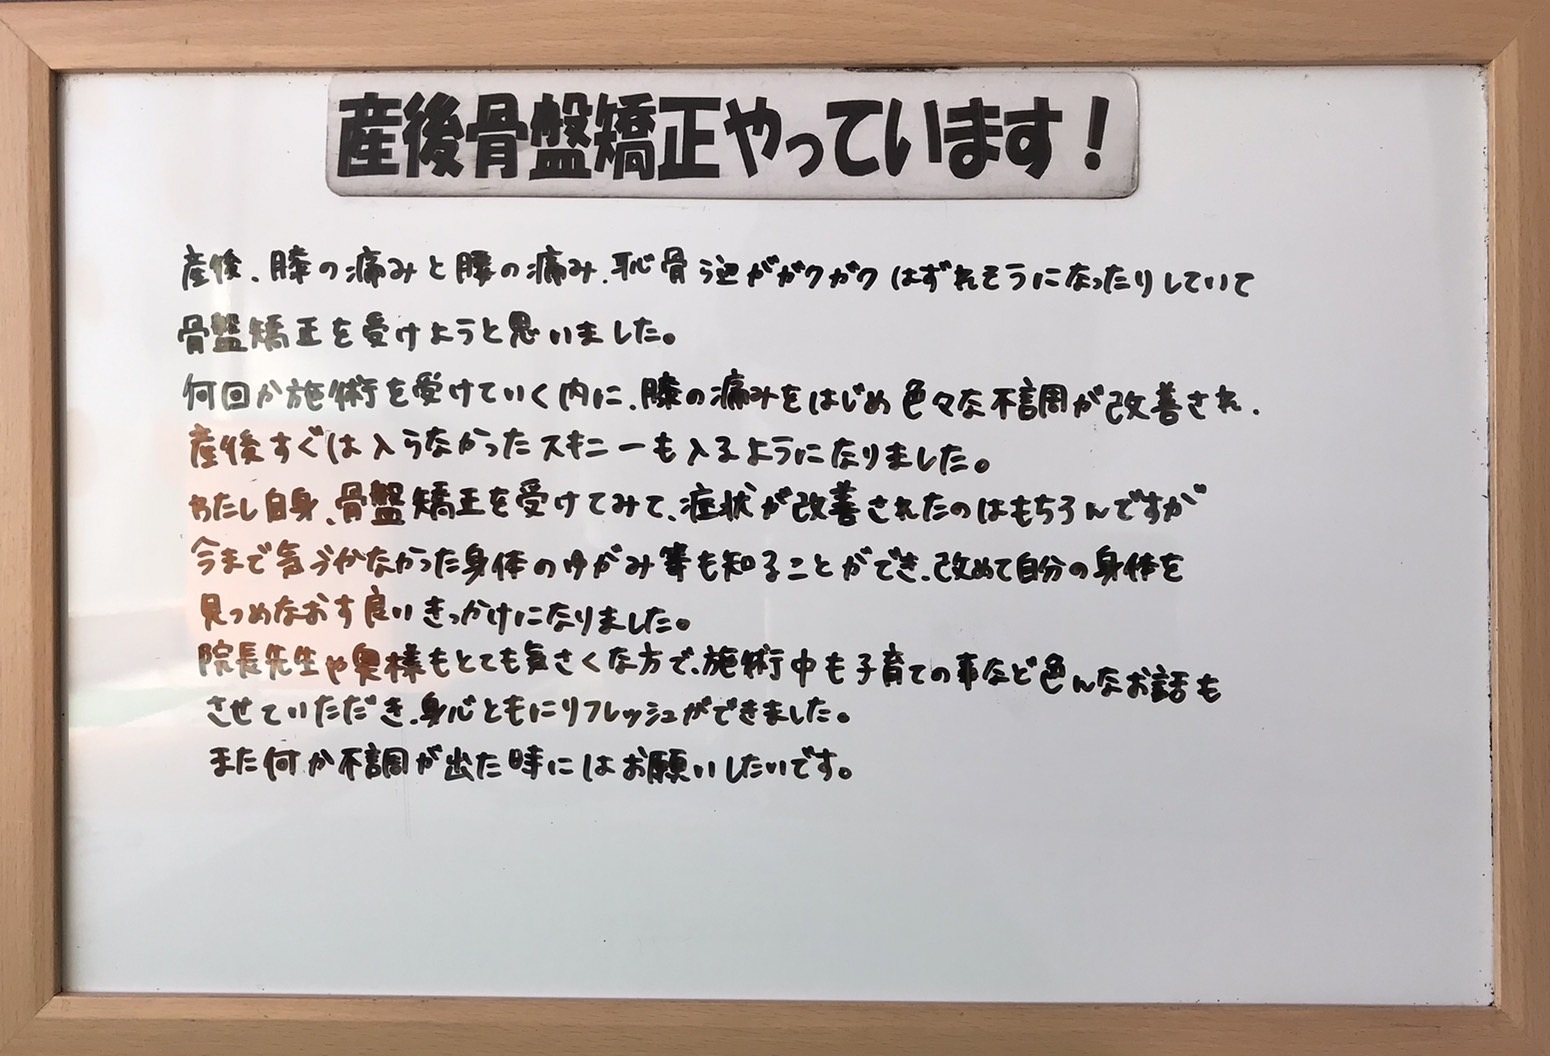 産後骨盤矯正やっています!
産後、膝の痛みと腰の痛み、恥骨う辺ががクガク はずれそうになったりしていて
骨盤矯正を受けようと思いました。
何回か施術を受けていく内に、膝の痛みをはじめ色々な不調が改善され、
産後すぐは入らなかったスキニーも入るようになりました。
わたし自身、骨盤矯正を受けてみて、症状が改善されたのはもちろんですが
今まで気づかなかった身体のゆがみ等も知ることができ、改めて自分の身体を
見つめなおす良いきっかけになりました。
院長先生や奥様もとても気さくな方で、施術中も子育ての事など色んなお話も
させていただき、身心ともにリフレッシュができました。
また何か不調が出た時にはお願いしたいです。